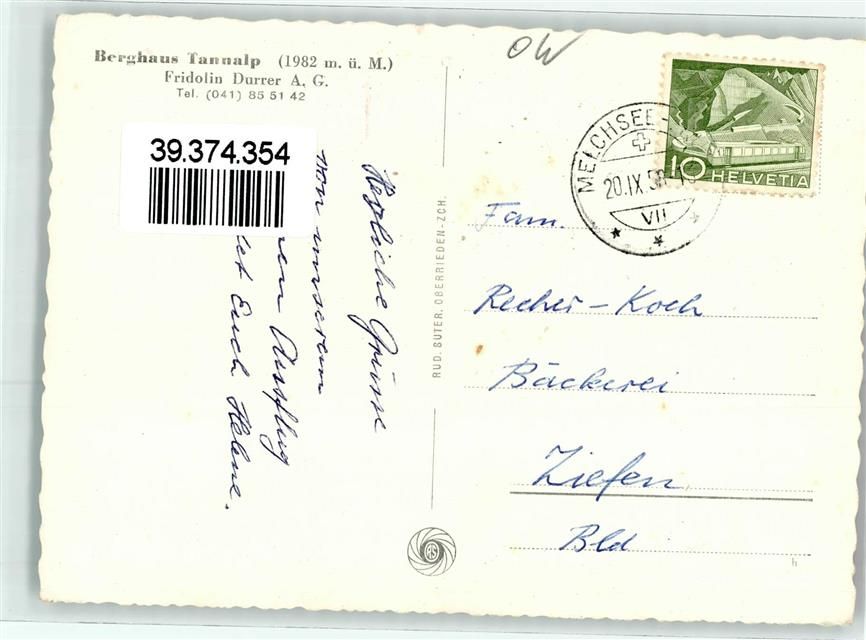 Berghaus Tannalp (1982 m. ü. M.)
Fridolin Durrer A. G.
Tel. (041) 85 51 42
39.374.354
Herzliche Grüsse
von unserem
Ausflug
Euch Helene.
RUD. SUTER, OBERRIEDEN-ZCH.
OW
MELCHSEE-
20.IX.5
VII
10 HELVETIA
Fam.
Recher-Koch
Bäckerei
Ziefen
Bld
h